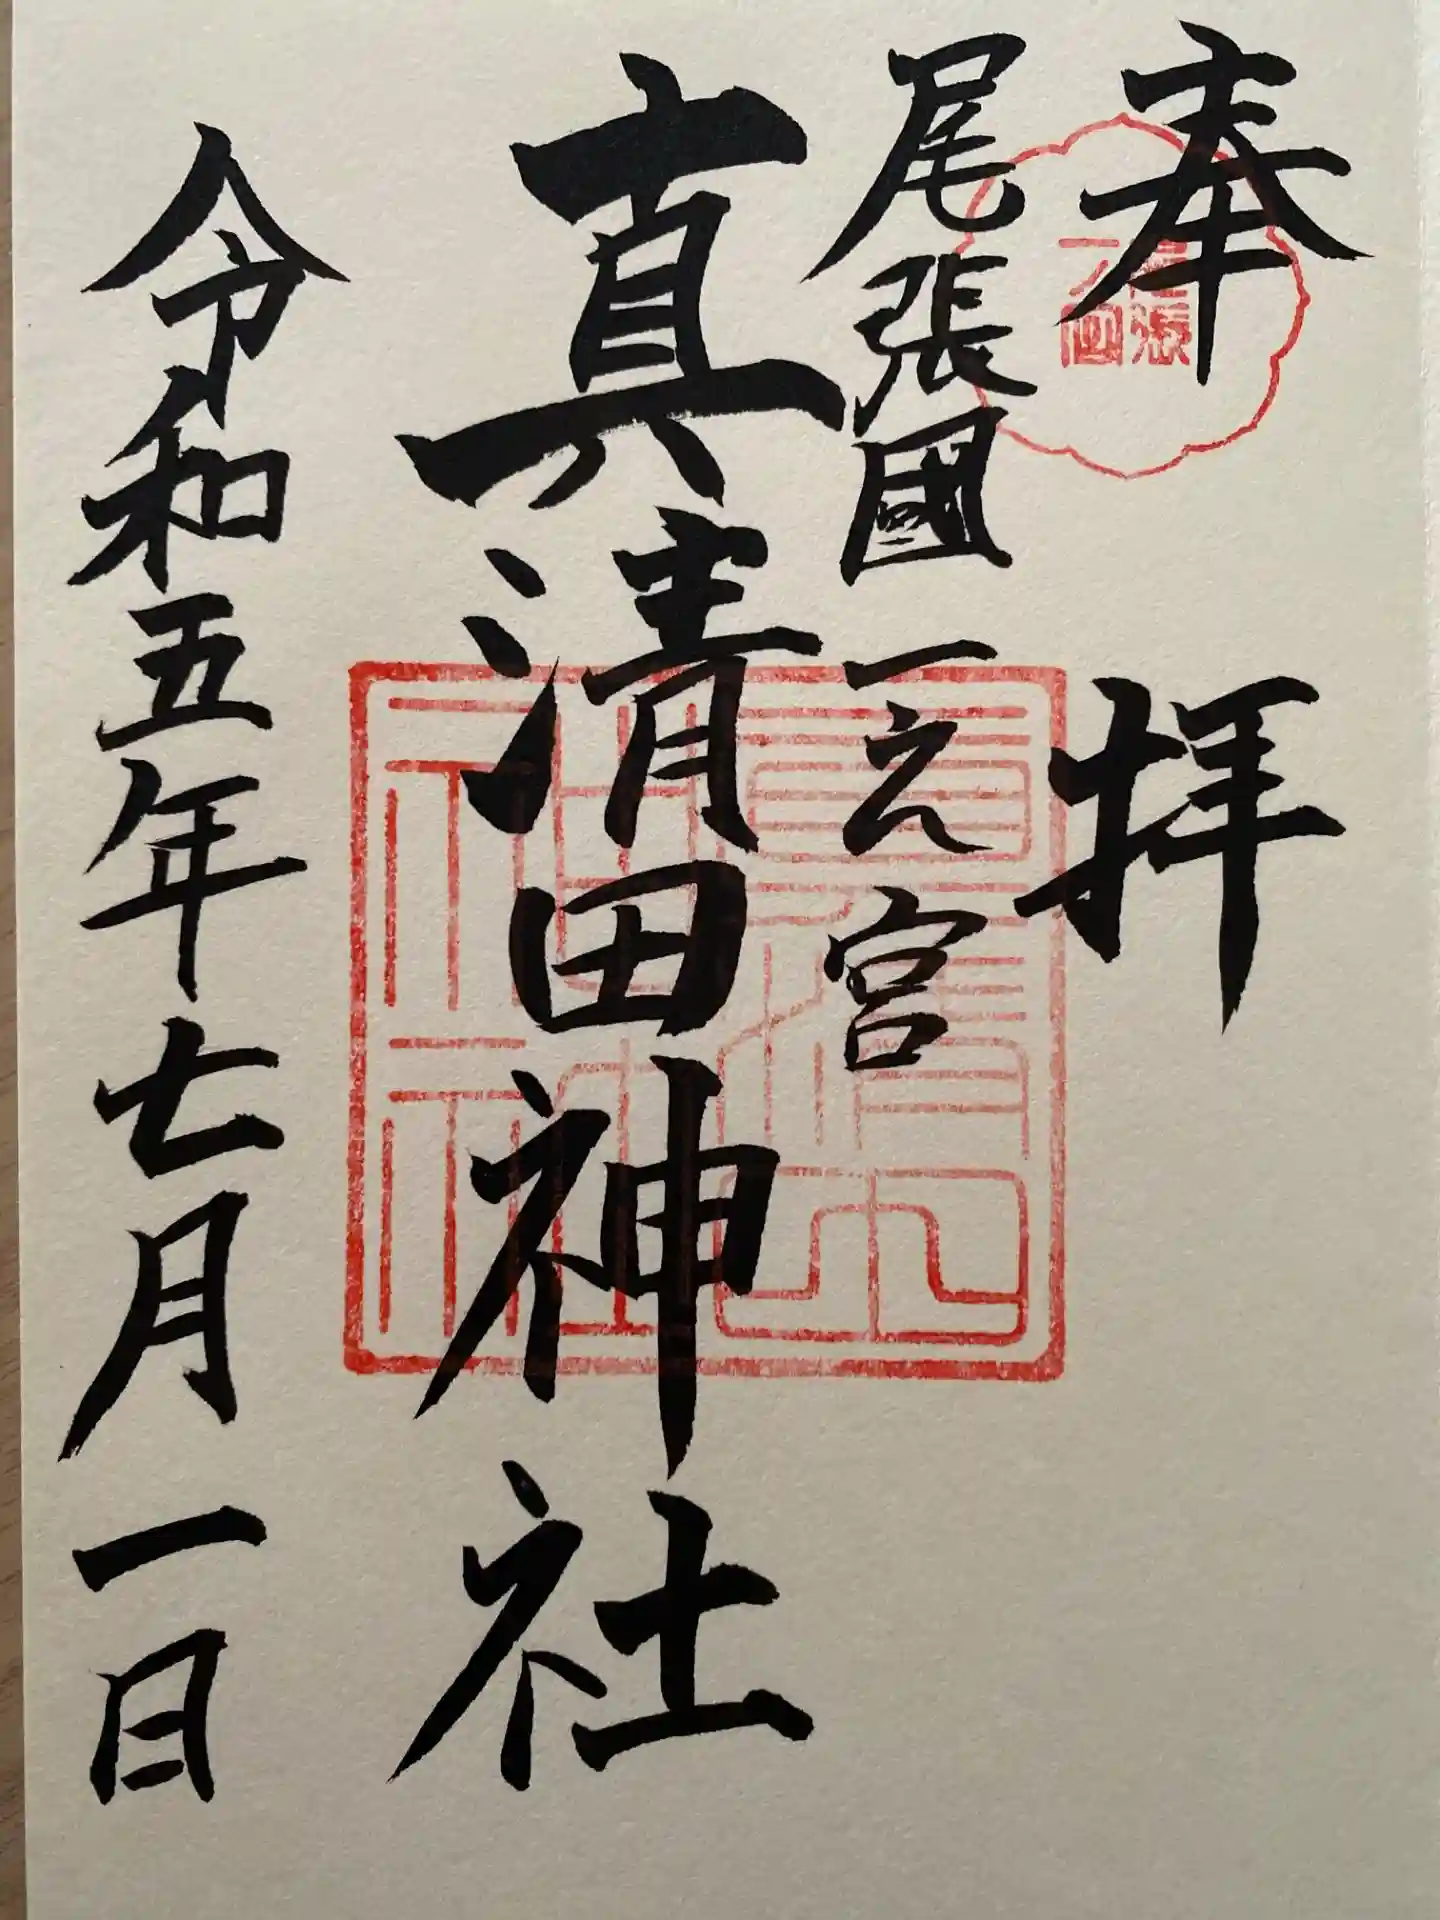 奉拝
尾張國一之宮
真清田神社
令和五年七月一日
尾張
一宮
真清田
神社